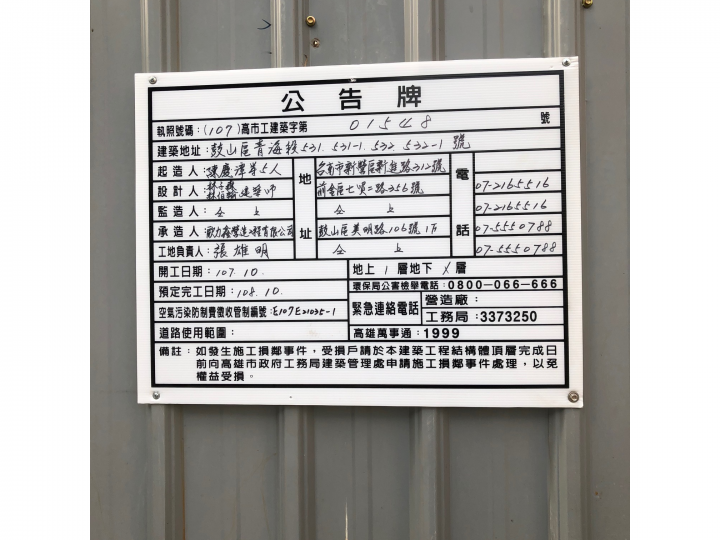 公告牌
執照號碼：(107)高市工建築字第 01548 號
建築地址：鼓山區青海段531. 531-1. 532 532-1 號
起造人：陳慶澤等5人 地址 台南市新營區新進路312號 電話 07-2165516
設計人： 建築師 前金區七賢二路356號 07-2165516
監造人： 仝 上 仝 上 07-5550788
承造人：歐力鑫營造工程有限公司 鼓山區美明路106號1F 07-5550788
工地負責人：張雄明 仝 上
開工日期：107.10. 地上 1 層地下 X 層
預定完工日期：108.10. 環保局公害檢舉電話：0800-066-666
空氣污染防制費徵收管制編號：E107E21035-1 緊急連絡電話 營造廠：
工務局：3373250
道路使用範圍： 高雄萬事通：1999
備註：如發生施工損鄰事件，受損戶請於本建築工程結構體頂層完成日
前向高雄市政府工務局建築管理處申請施工損鄰事件處理，以免
權益受損。